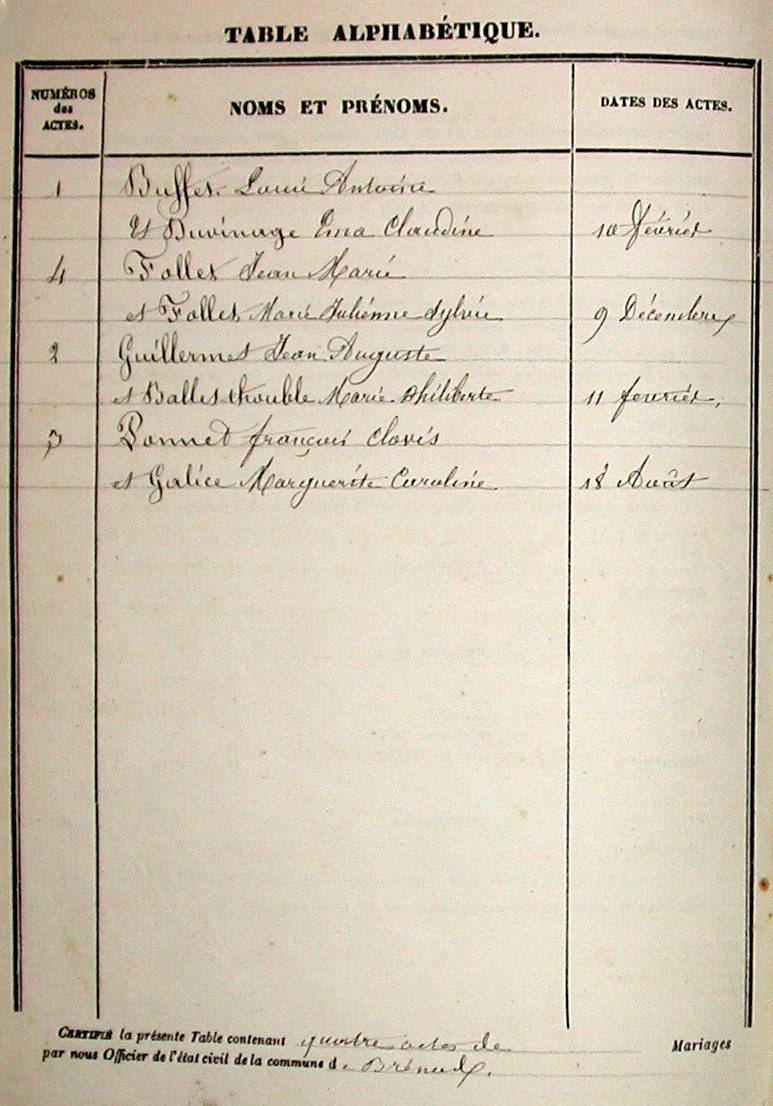 TABLE ALPHABÉTIQUE.
NUMÉROS
des
ACTES.
NOMS ET PRÉNOMS.
DATES DES ACTES.
1 Buffet Louis Antoine
Et Duvinage Ema Claudine 10 février
4 Follet Jean Marie
et Follet Marie Julienne Sylvie 9 Décembre
2 Guillermet Jean Auguste
et Ballet Marie Philiberte 11 fevrier,
3 Ponnet françois Clovis
et Galice Marguerite Caroline 18 Août
CERTIFIÉ la présente Table contenant quatre actes de Mariages
par nous Officier de l'état civil de la commune de Brénod.